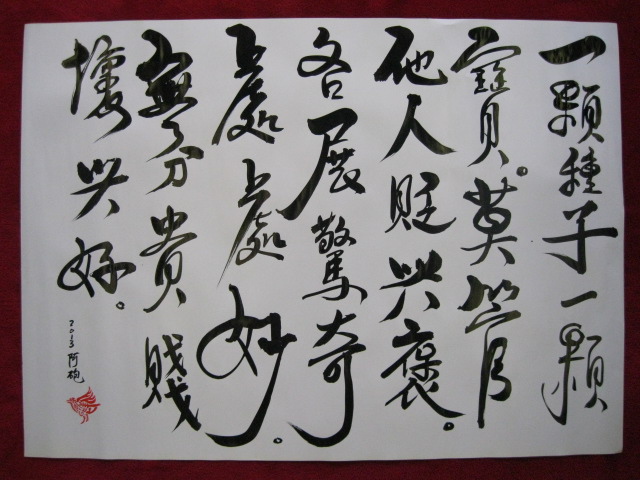 一顆種子一顆
寶。莫管
他人貶與褒。
各展驚奇
處處妙。
無分貴賤
壞與好。
2013 阿